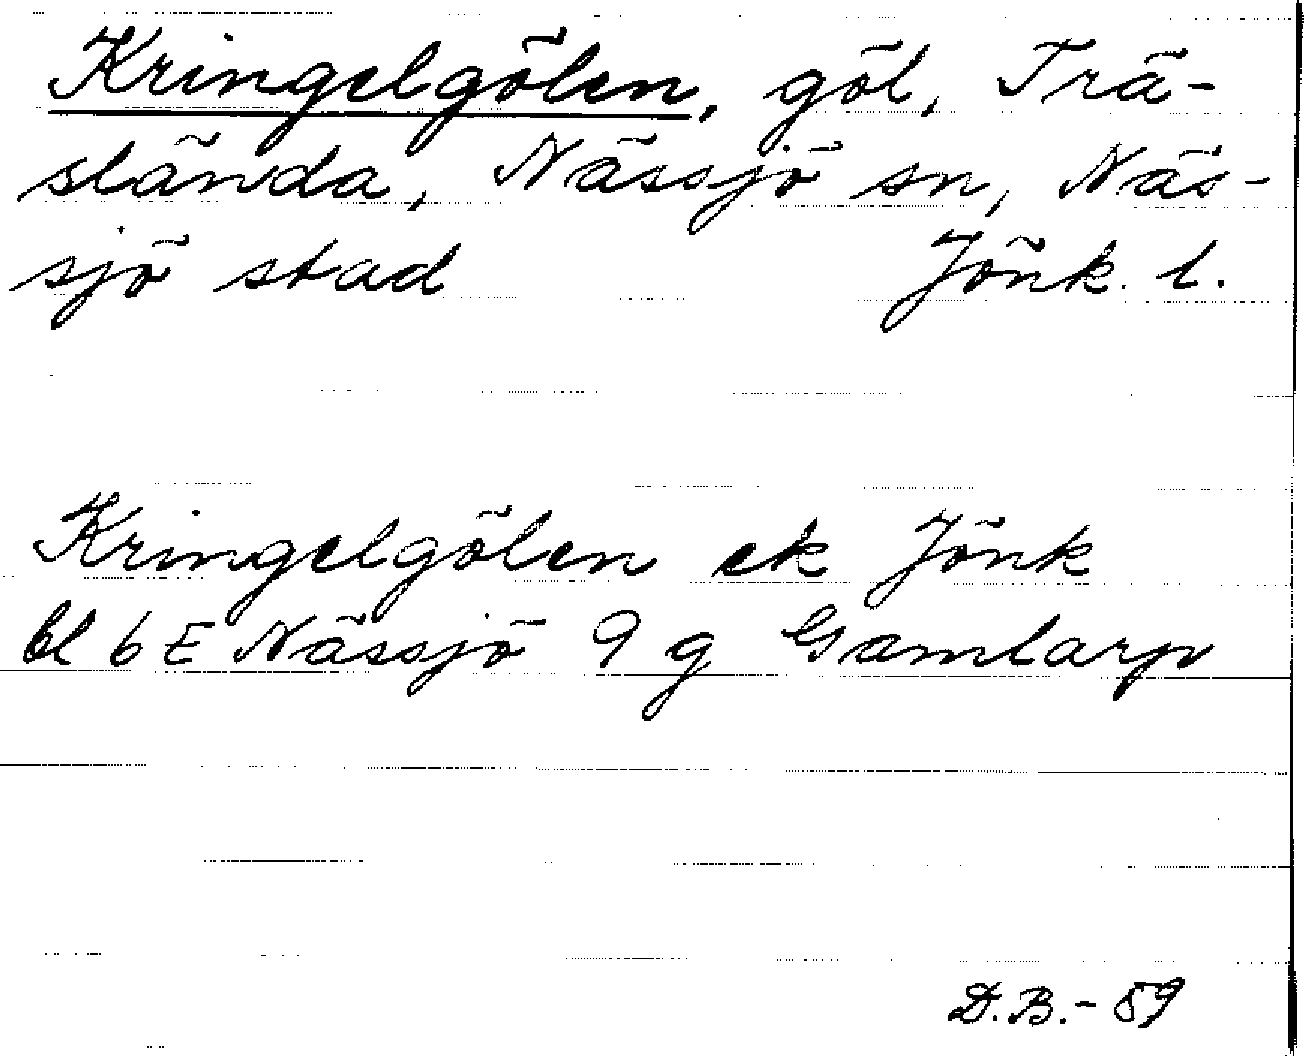 Kringelgölen, göl, Trä-
slända, Nässjö sn, Näs-
sjö stad Jönk. l.
Kringelgölen ek Jönk
bl 6 E Nässjö 9 g Gamlarp
D.B.-59